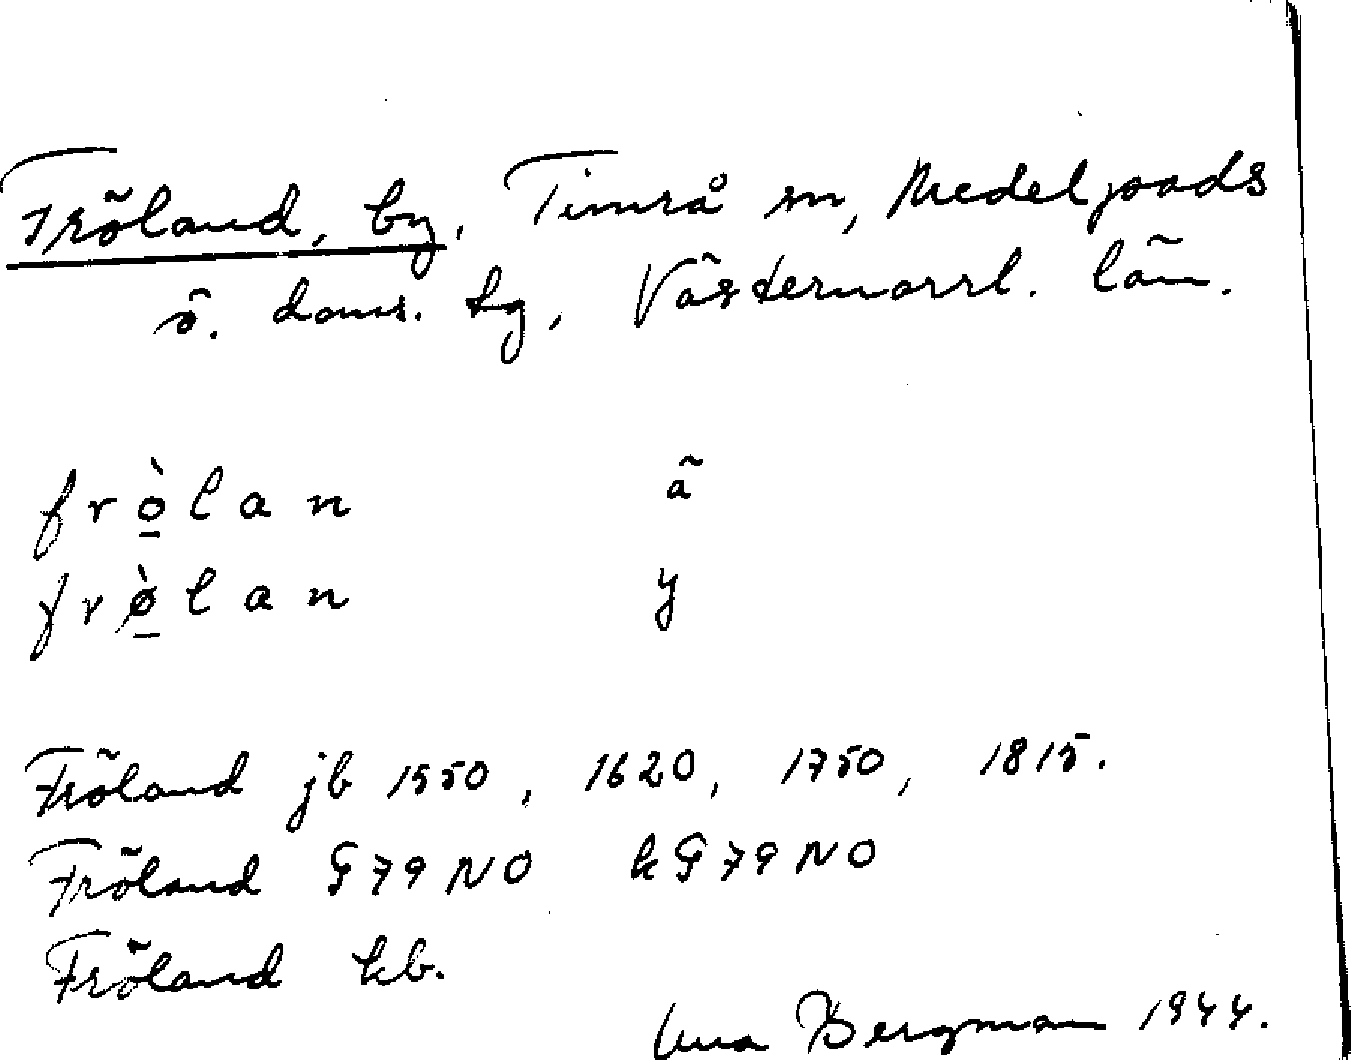 Fröland, by, Timrå sn, Medelpads
ö. doms. tg, Västernorrl. län.
fròlan ä
frø̀lan y
Fröland jb 1550, 1620, 1750, 1815.
Fröland G 79 NO kG 79 NO
Fröland kb.
Bergman 1944.